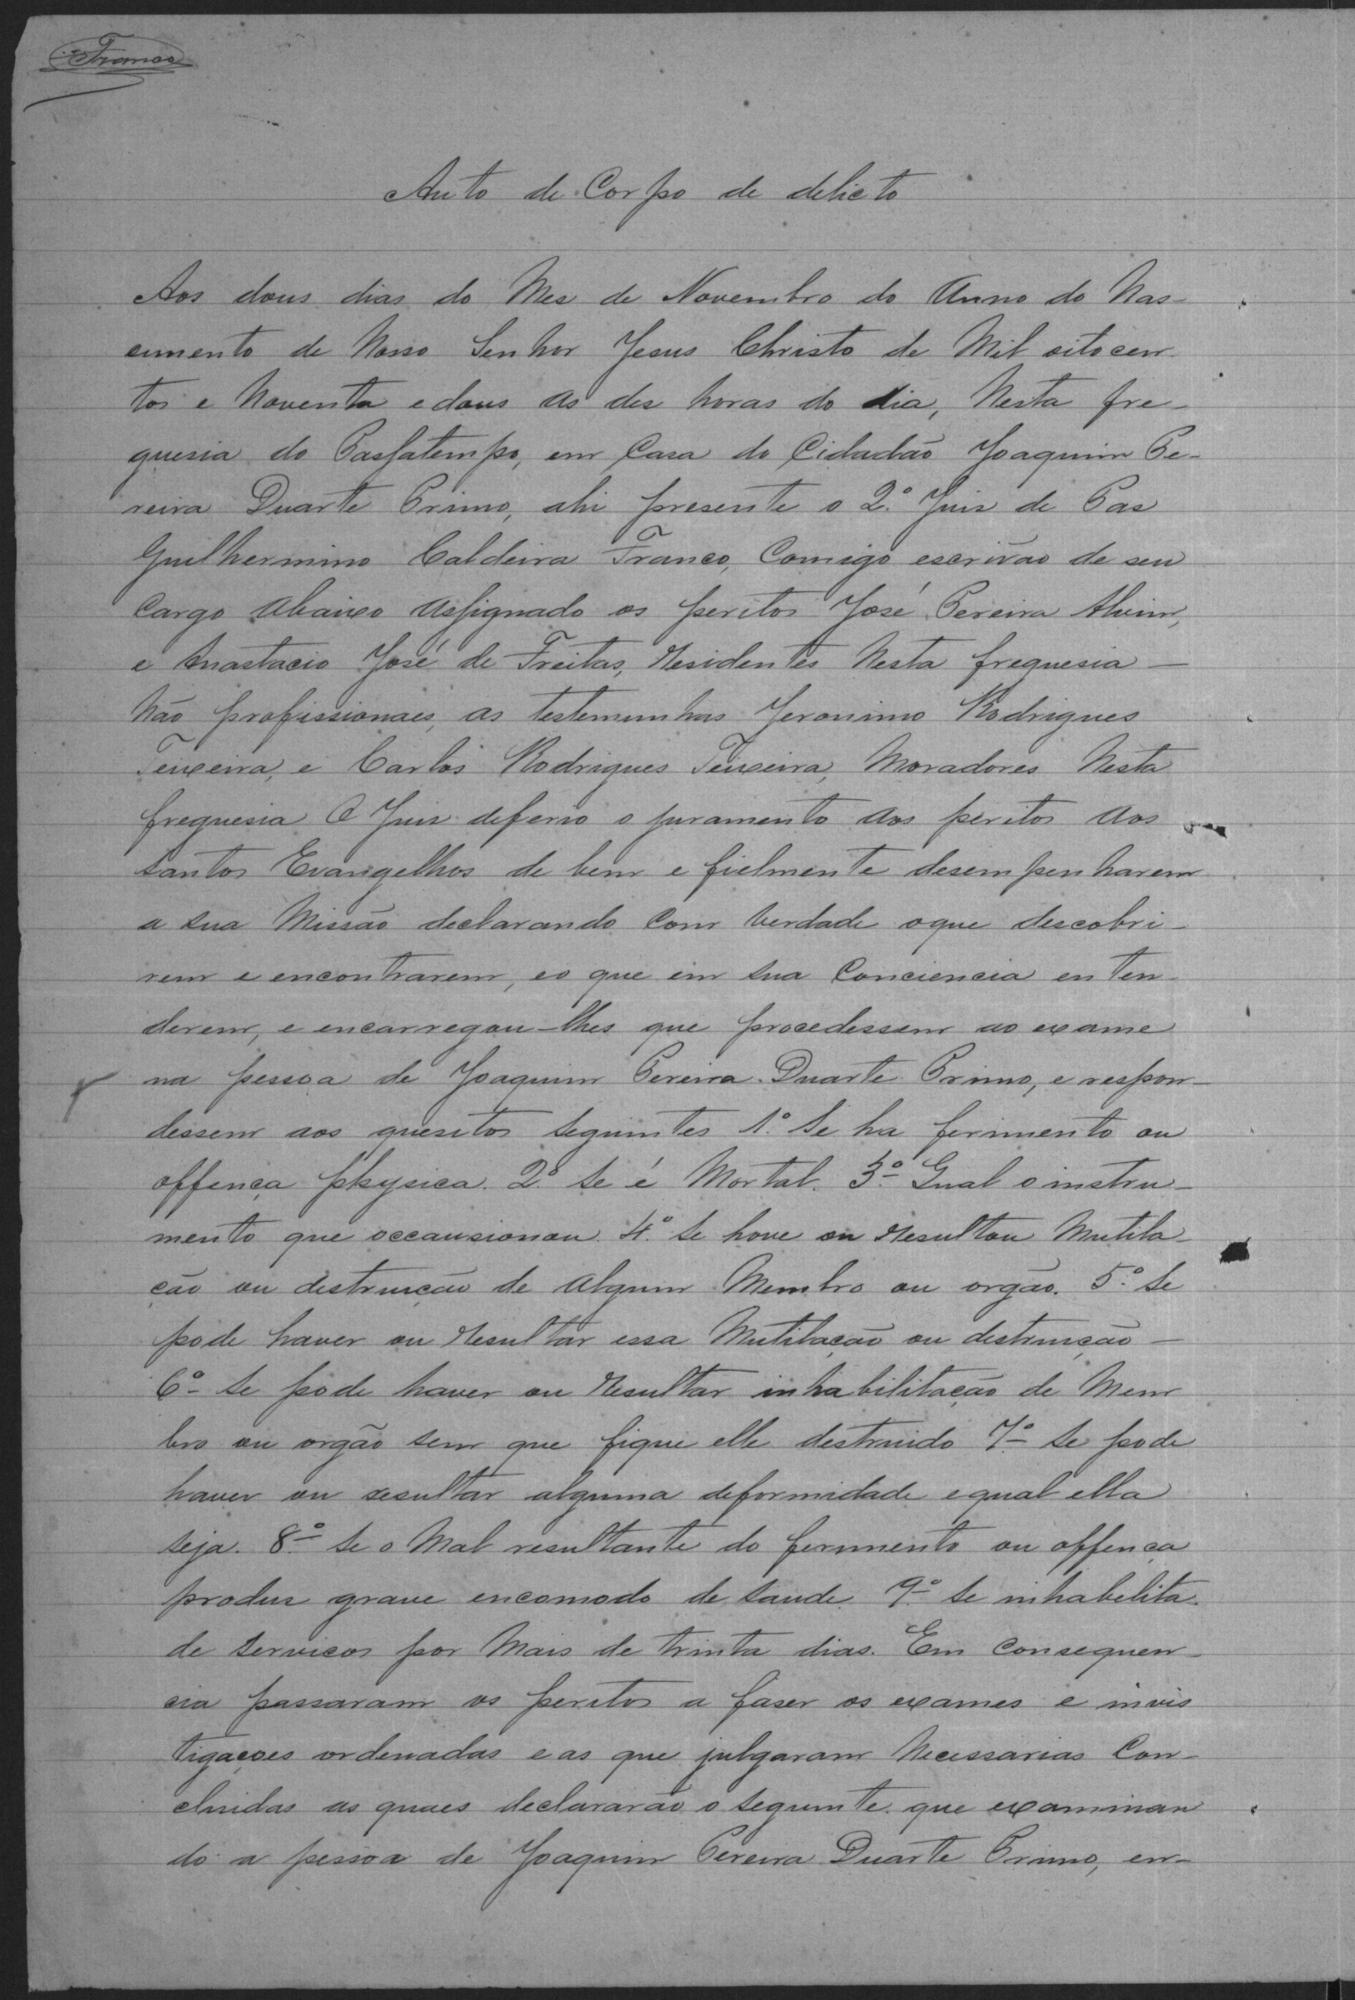 Franco
Auto de Corpo de delicto
Aos dous dias do Mez de Novembro do Anno do Nas-
cimento de Nosso Senhor Jesus Christo de Mil oitocen
tos e Noventa e dous as dez horas do dia, Nesta fre-
guesia do Passatempo, em Casa do Cidadão Joaquim Pe-
reira Duarte Primo, ahi presente o 2º Juiz de Paz
Guilhermino Caldeira Franco, Comigo escrivão de seu
Cargo abaixo assignado os peritos José Pereira Alvim,
e Anastacio José de Freitas, residentes Nesta freguesia —
Não profissionaes, as testemunhas Jeronimo Rodrigues
Teixeira, e Carlos Rodrigues Teixeira, Moradores Nesta
freguesia O Juiz deferio o juramento aos peritos aos
Santos Evangelhos de bem e fielmente desempenharem
a sua Missão declarando Com Verdade oque descobri-
rem e encontrarem, eo que em sua Conciencia enten-
derem, e encarregou-lhes que procedessem ao exame
na pessoa de Joaquim Pereira Duarte Primo, e respon-
dessem aos quesitos seguintes 1º Se ha ferimento ou
offença physica. 2º Se é Mortal. 3º Qual o instru-
mento que occausionou 4º Se hove ou resultou Mutila-
ção ou distruição de algum Membro ou orgão. 5º Se
pode haver ou resultar essa Mutilação ou distruição —
6º Se pode haver ou resultar inhabilitação de Mem
bro ou orgão sem que fique elle destruido 7º Se pode
haver ou resultar alguma deformidade equal ella
seja. 8º Se o Mal resultante do ferimento ou offença
produz grave encomodo de saude. 9º Se inhabelita
de serviços por Mais de trinta dias. Em Consequen-
cia passaram os peritos a faser os exames e invis
tigações ordenadas e as que julgaram Necessarias Con-
cluidas as quaes declararão o seguinte que examinan
do a pessoa de Joaquim Pereira Duarte Primo, en-